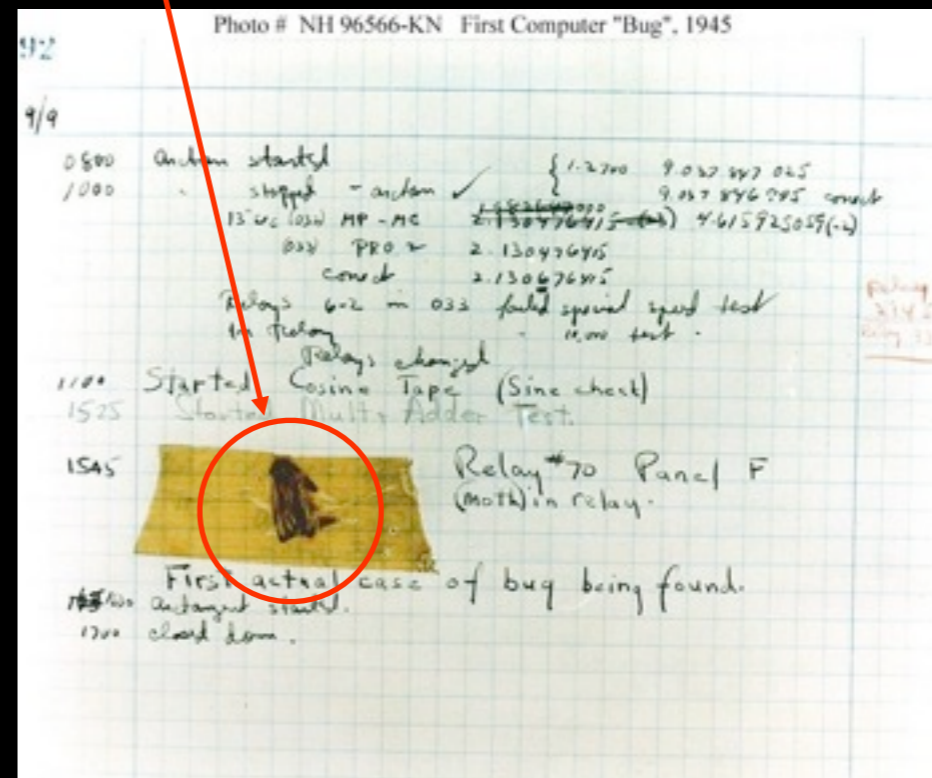 Photo # NH 96566-KN First Computer "Bug", 1945
92
9/9
0800 started
1000 stopped - ✓ { 1.2700 9.037 847 025
9.037 846 correct
13" MP - MC 2.130476415 4.615925059(-2)
(033) PRO 2 2.130476415
correct 2.130676415
Relays 6-2 in 033 failed special speed test
Relay 10,000 test.
Relays changed
1100 Started Cosine Tape (Sine check)
1525 Started Mult + Adder Test.
1545 Relay #70 Panel F
(moth) in relay.
First actual case of bug being found.
started.
1700 closed down.